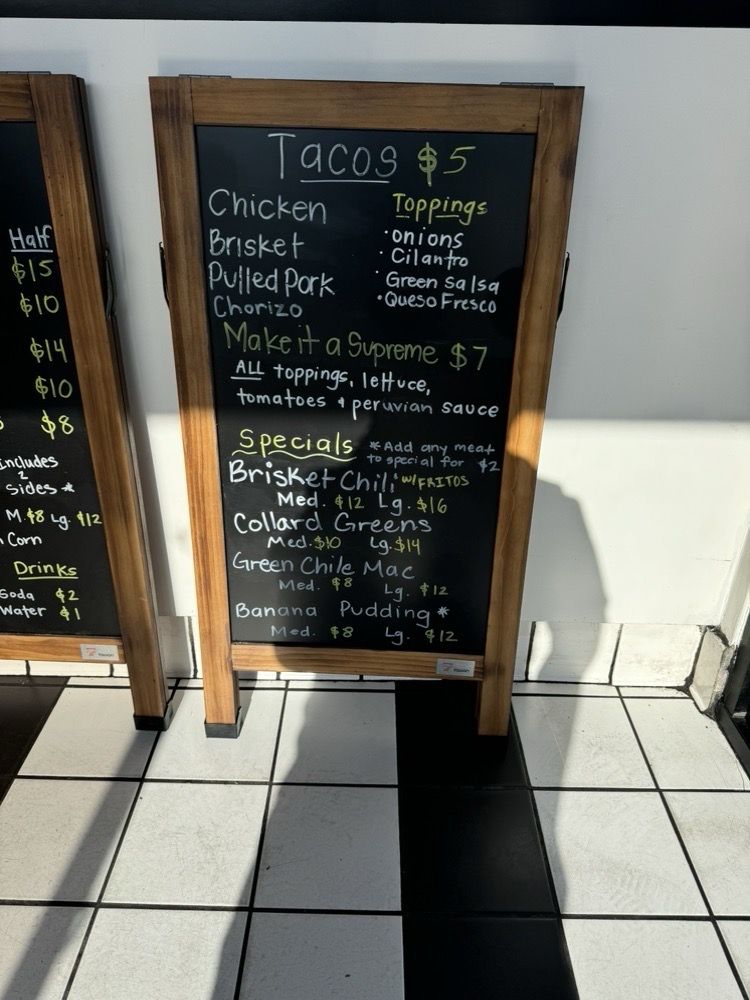 Half
$15
$10
$14
$10
$8
includes
2
sides *
M. $8 Lg. $12
Corn
Drinks
Soda $2
Water $1
Tacos $5
Chicken
Brisket
Pulled Pork
Chorizo
Toppings
• onions
• Cilantro
• Green Salsa
• Queso Fresco
Make it a Supreme $7
ALL toppings, lettuce,
tomatoes + peruvian sauce
Specials
* Add any meat
to special for $2
Brisket Chili w/FRITOS
Med. $12 Lg. $16
Collard Greens
Med. $10 Lg. $14
Green Chile Mac
Med. $8 Lg. $12
Banana Pudding *
Med. $8 Lg. $12